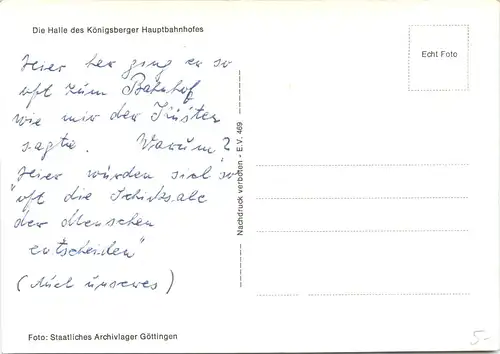 Die Halle des Königsberger Hauptbahnhofes
Hier her ging er so
oft zum Bahnhof
wie mir der Küster
sagte. Warum?
Hier würden sich so
"oft die Schicksale
der Menschen
entscheiden"
(Auch unseres)
Foto: Staatliches Archivlager Göttingen
Nachdruck verboten - E.V. 469
Echt Foto
5-